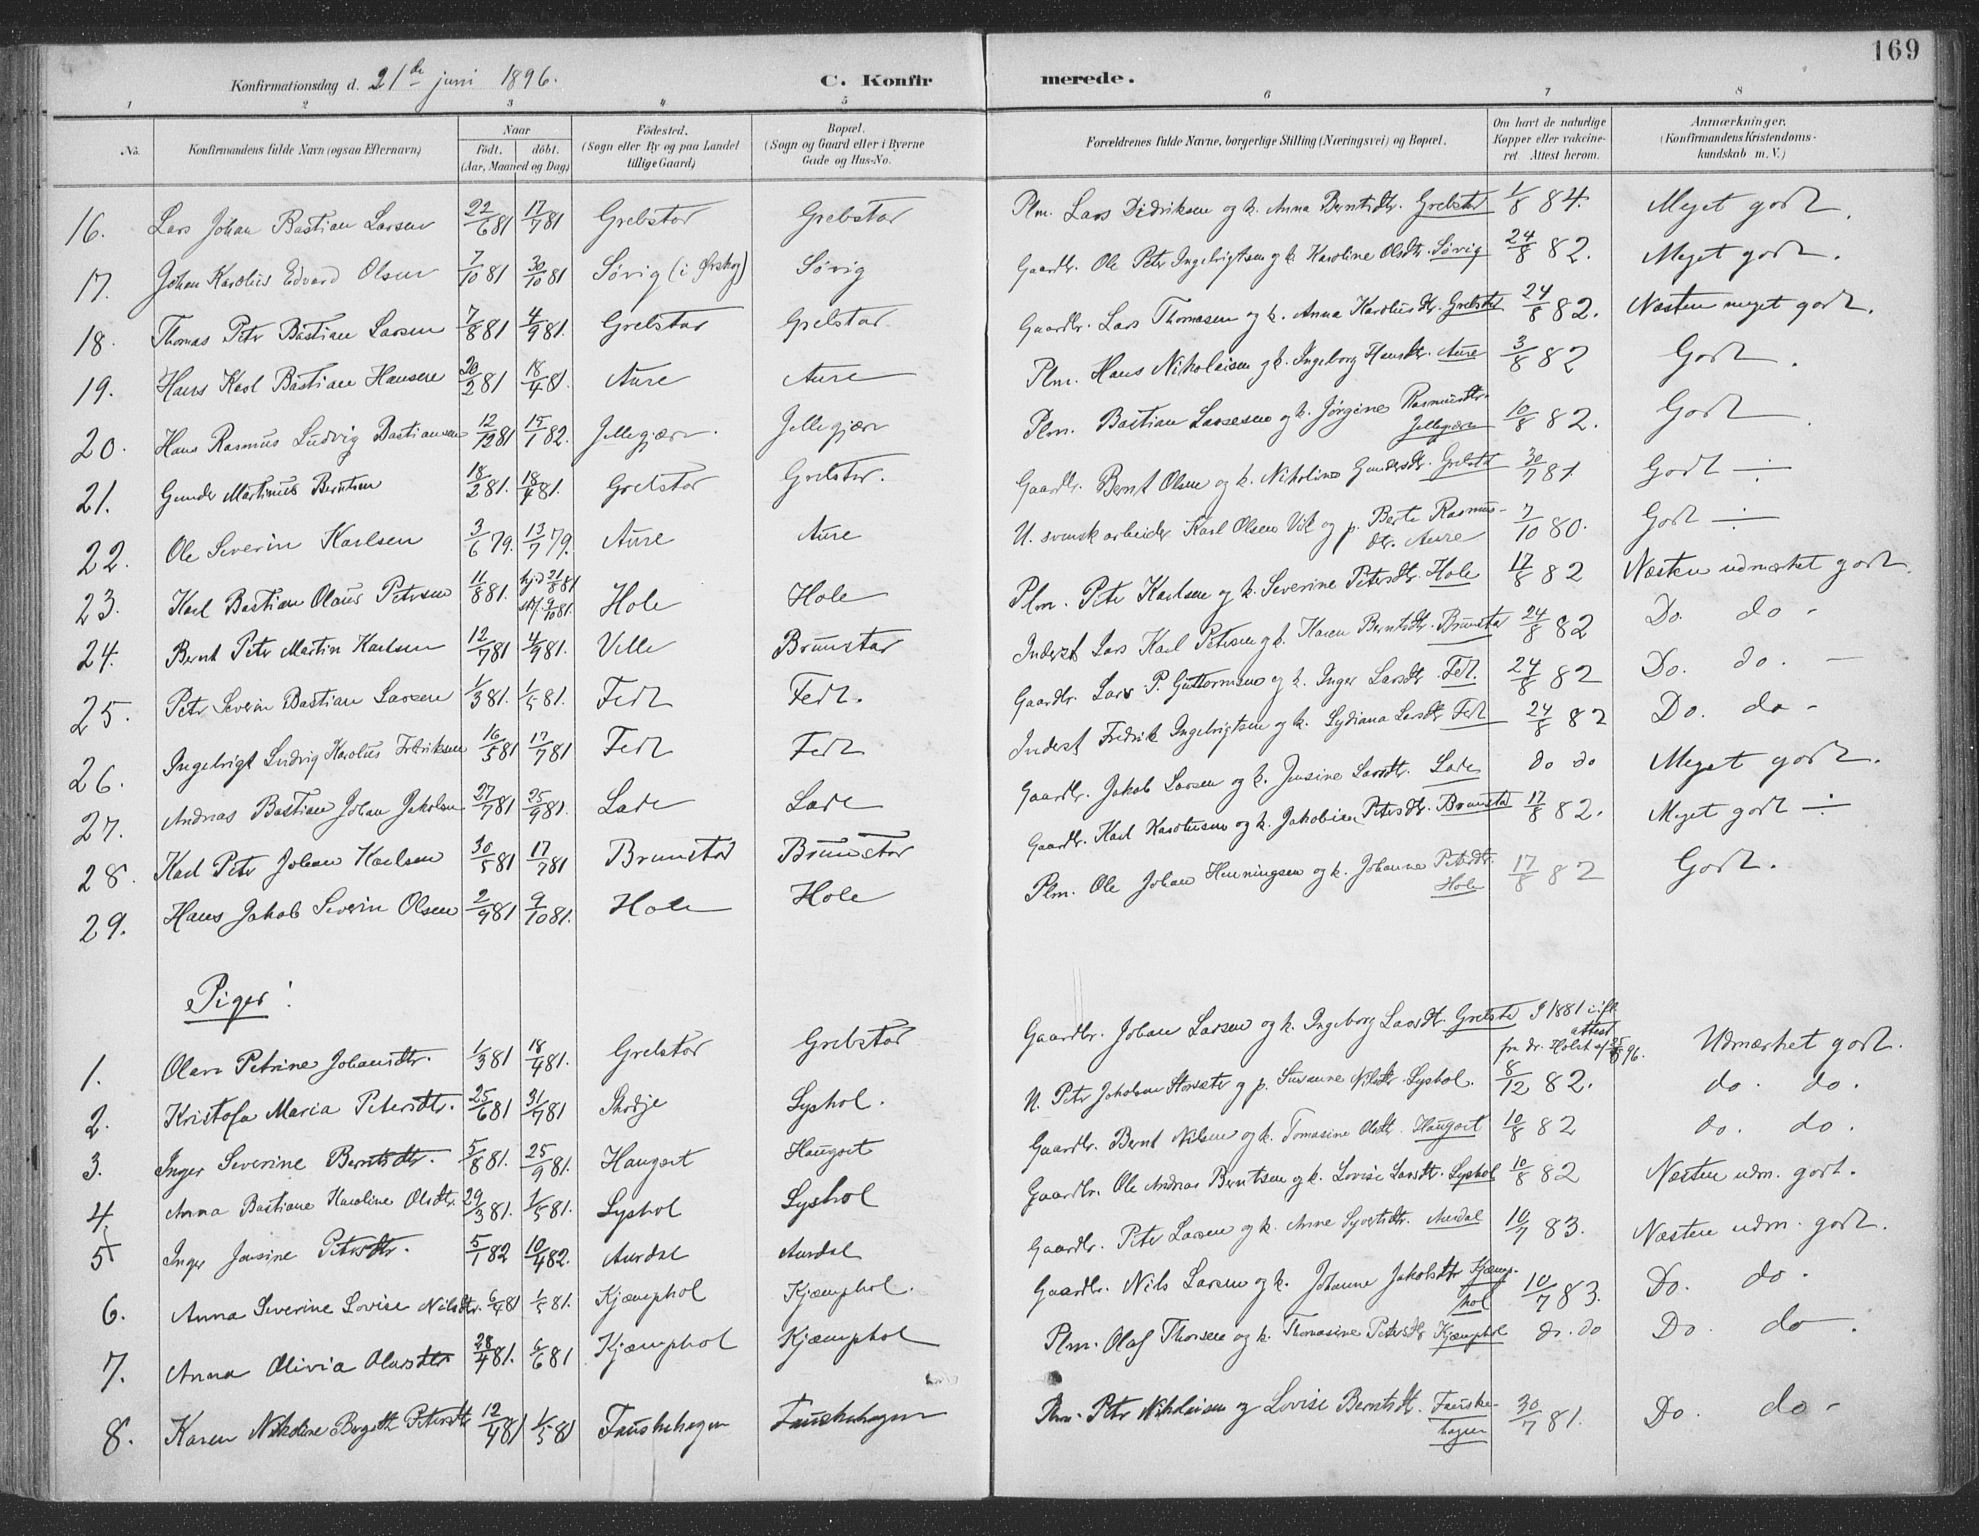 169
Konfirmationsdag d. 21de juni 1896. C. Konfirmerede.
1 2 3 4 5 6 7 8
No. Konfirmandens fulde Navn (ogsaa Efternavn) Naar født. døbt. (Aar, Maaned og Dag) Fødested. (Sogn eller By og paa Landet tillige Gaard) Bopæl. (Sogn og Gaard eller i Byerne Gade og Hus-No. Forældrenes fulde Navne, borgerlige Stilling (Næringsvei) og Bopæl. Om havt de naturlige Kopper eller vakcineret Attest herom. Anmærkninger. (Konfirmandens Kristendomskundskab m. V.)
16. Lars Johan Bastian Larsen 22/6 81 17/7 81 Grebstad Grebstad Plm. Lars Didriksen og k. Anna Berntsdtr. Grebstad 1/8 84. Meget godt.
17. Johan Karolius Edvard Olsen 7/10 81 30/10 81 Søvig (i Ørskog) Søvig Gaardbr. Ole Peter Ingebrigtsen og k. Karoline Olsdtr. Søvig 24/8 82. Meget godt.
18. Thomas Petr Bastian Larsen 7/8 81 4/9 81. Grebstad Grebstad Gaardbr. Lars Thomasen og k. Anna Karolusdtr. Grebstad 24/8 82. Næsten meget godt.
19. Hans Karl Bastian Hansen 20/2 81 18/4 81. Aure Aure Plm. Hans Nikolaisen og k. Ingeborg Hansdtr. Aure 3/8 82 Godt.
20. Hans Rasmus Ludvig Bastiansen 12/12 81 15/1 82. Jellegjærn. Jellegjærn Plm. Bastian Larsen og k. Jørgine Rasmusdtr. Jellegjærn 10/8 82. Godt.
21. Gunder Martinus Berntsen 18/2 81. 18/4 81. Grebstad Grebstad. Gaardbr. Bernt Olsen og k. Nikoline Gundersdtr. Grebstad 30/7 81 Godt ÷
22. Ole Severin Karlsen 3/6 79. 13/7 79. Aure Aure U. svensk arbeider Karl Olsen Vik og p. Berte Rasmusdtr. Aure 7/10 80. Godt ÷
23. Karl Bastian Olaus Petersen 11/8 81. hjd 21/8 81 st. 9/10 81 Hole Hole Plm. Peter Karlsen og k. Severine Petersdtr. Hole 17/8 82 Næsten udmærket godt.
24. Bernt Petr Martin Karlsen 12/7 81 4/9 81. Velle Brunstad Inderst Lars Karl Petersen og k. Karen Berntsdtr. Brunstad 24/8 82 Do. do.
25. Petr Severin Bastian Larsen 1/3 81. 1/5 81. Fedt Fedt. Gaardbr. Lars P. Guttormsen og k. Inger Larsdtr. Fet. 24/8 82 Do. do. —
26. Ingebrigt Ludvig Karolus Fredriksen 16/5 81 17/7 81 Fedt Fedt Inderst Fredrik Ingebrigtsen og k. Lydiana Larsdtr. Fedt 24/8 82 Do. do -
27. Andreas Bastian Johan Jakobsen 27/7 81 25/9 81. Lade Lade Gaardbr. Jakob Larsen og k. Jensine Larsdtr. Lade do do Meget godt.
28. Karl Petr Johan Karlsen 30/5 81 17/7 81 Brunstad Brunstad Gaardbr. Karl Karolusen og k. Jakobine Petersdtr. Brunstad 17/8 82. Meget godt ÷
29. Hans Jakob Severin Olsen 2/9 81 9/10 81. Hole Hole Plm. Ole Johan Henningsen og k. Johanne Petersdtr. Hole 17/8 82 Godt.
Piger!
1. Olave Petrine Johansdtr. 1/3 81 18/4 81. Grebstad Grebstad Gaardbr. Johan Larsen og k. Ingeborg Larsdtr. Grebstad I 1881 attest fra dr. Holst 96. Udmærket godt.
2. Kristofa Maria Petersdtr. 25/6 81 31/7 81 Skodje Lyshol. N. Petr Jakobsen Storsæter og p. Susanne Nilsdtr. Lyshol. 8/12 82. do. do.
3. Inger Severine Berntsdtr. 5/8 81. 25/9 81. Haugset Haugset Gaardbr. Bernt Nilsen og k. Tomasine Olsdtr. Haugset 10/8 82 do. do.
4. Anna Bastiane Karoline Olsdtr. 29/3 81. 1/5 81. Lyshol Lyshol Gaardbr. Ole Andreas Berntsen og k. Lovise Larsdtr. Lyshol 10/8 82 Næsten udm. godt.
5 Inger Jensine Petersdtr. 5/1 82 10/4 82. Aurdal Aurdal Gaardbr. Peter Larsen og k. Anne Syvertsdtr. Aurdal 10/7 83. Næsten udm. godt.
6. Anna Severine Lovise Nilsdtr. 6/4 81 1/5 81. Kjæmphol Kjæmphol. Gaardbr. Nils Larsen og k. Johanne Jakobsdtr. Kjæmphol 10/7 83. Do. do.
7. Anna Olivia Olavsdtr. 28/4 81. 6/6 81 Kjæmphol Kjæmphol Plm. Olaf Thorsen og k. Thomasine Petersdtr. Kjæmphol do. do Do. do.
8. Karen Nikoline Bergitte Petersdtr 12/4 81 1/5 81 Fauskehagen Fauskehagen Plm. Petr Nikolaisen og Lovise Berntsdtr. Fauskehagen 30/7 81. Do. do -